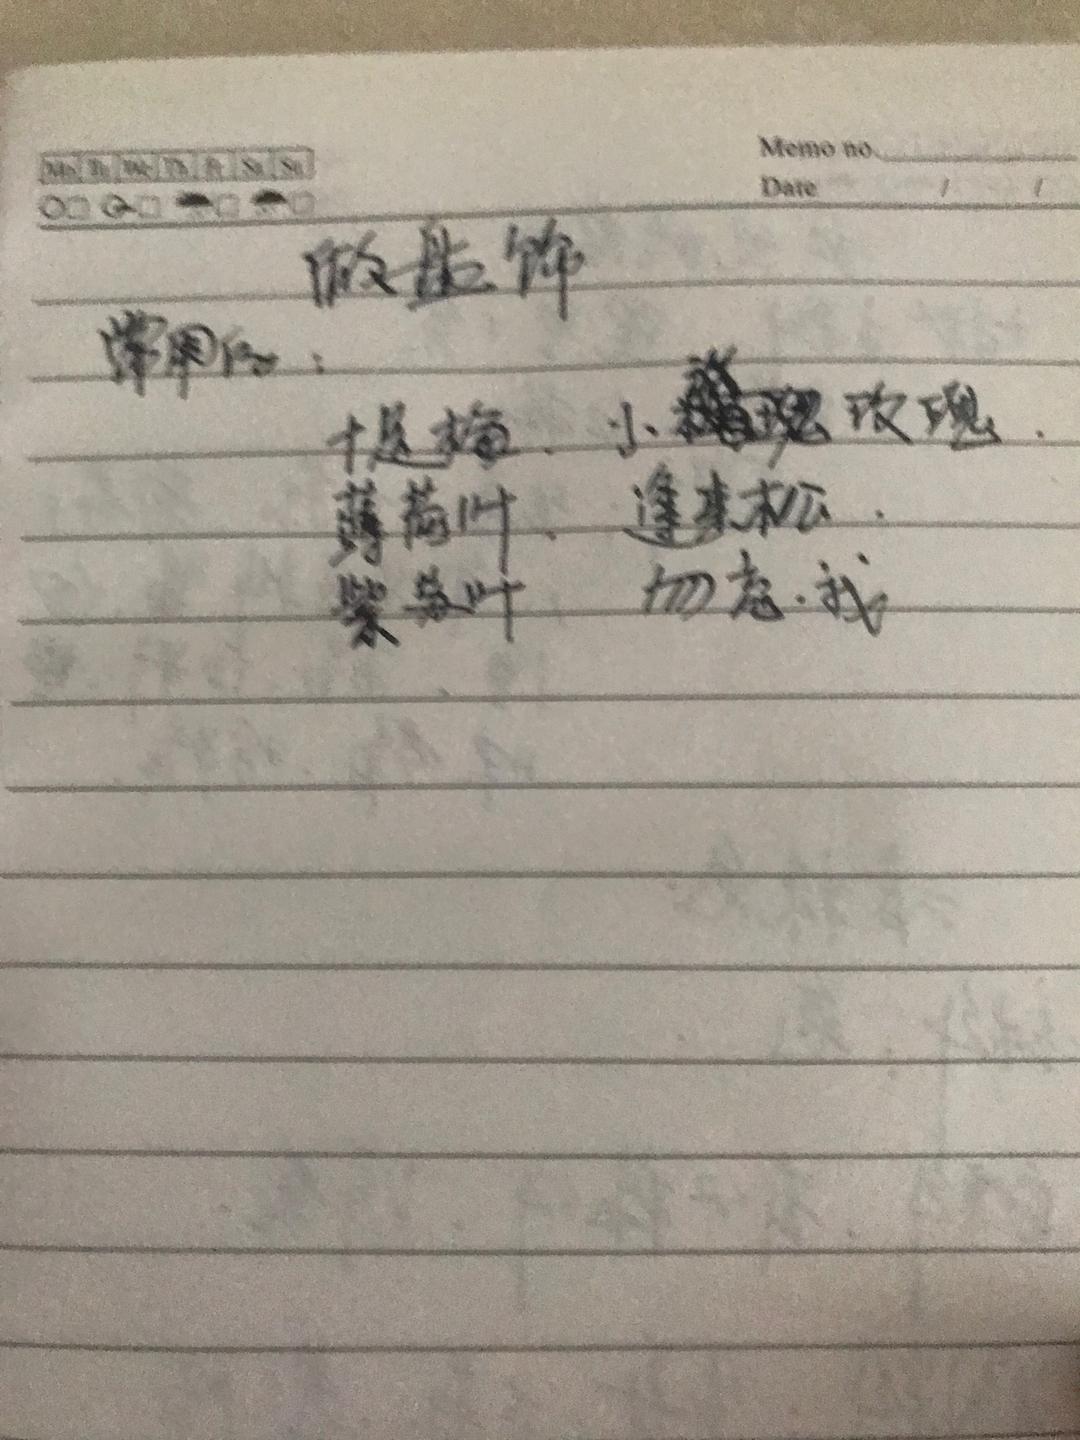 Mo Tu We Th Fr Sa Su
Memo no.
Date / /
做盘饰
常用的:
十是梅. 小玫瑰.
薄荷叶. 逢来松.
紫苏叶 勿忘.我